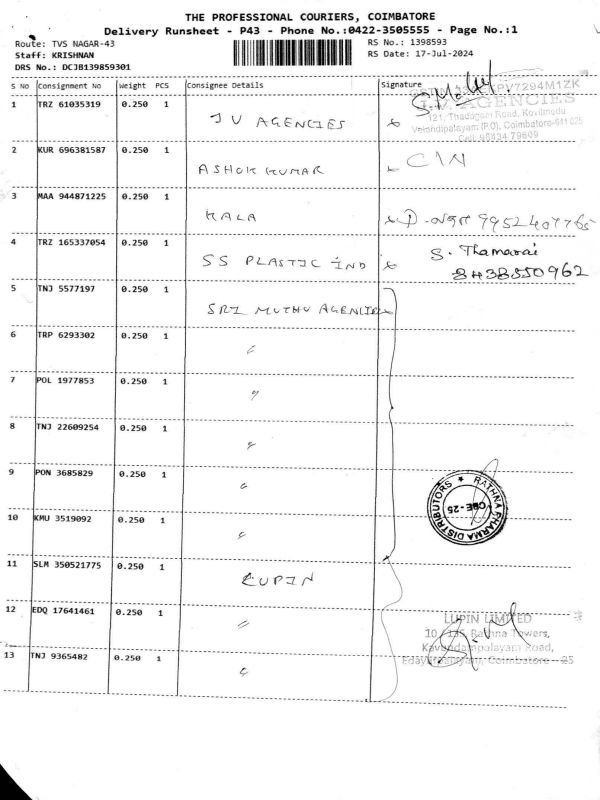 THE PROFESSIONAL COURIERS, COIMBATORE
Delivery Runsheet - P43 - Phone No.:0422-3505555 - Page No.:1
Route: TVS NAGAR-43
RS No.: 1398593
Staff: KRISHNAN
RS Date: 17-Jul-2024
DRS No.: DCJB139859301
S No Consignment No Weight PCS Consignee Details Signature
1 TRZ 61035319 0.250 1 JV AGENCIES
J.V. AGENCIES
121, Thadagam Road, Kovilmedu
Velandipalayam (P.O), Coimbatore-641 025
Cell: 96834 79609
2 KUR 696381587 0.250 1 ASHOK KUMAR
3 MAA 944871225 0.250 1 KALA
4 TRZ 165337054 0.250 1 SS PLASTIC IND S. Thamarai
8438550962
5 TNJ 5577197 0.250 1 SRI MUTHU AGENCIES
6 TRP 6293302 0.250 1 "
7 POL 1977853 0.250 1 "
8 TNJ 22609254 0.250 1 "
9 PON 3685829 0.250 1 "
RATHNA PHARMA DISTRIBUTORS
CBE-25
10 KMU 3519092 0.250 1 "
11 SLM 350521775 0.250 1 LUPIN
12 EDQ 17641461 0.250 1 "
LUPIN LIMITED
10 / 135, Rathna Towers,
Kavundampalayam Road,
Edayarpalayam, Coimbatore - 25
13 TNJ 9365482 0.250 1 "